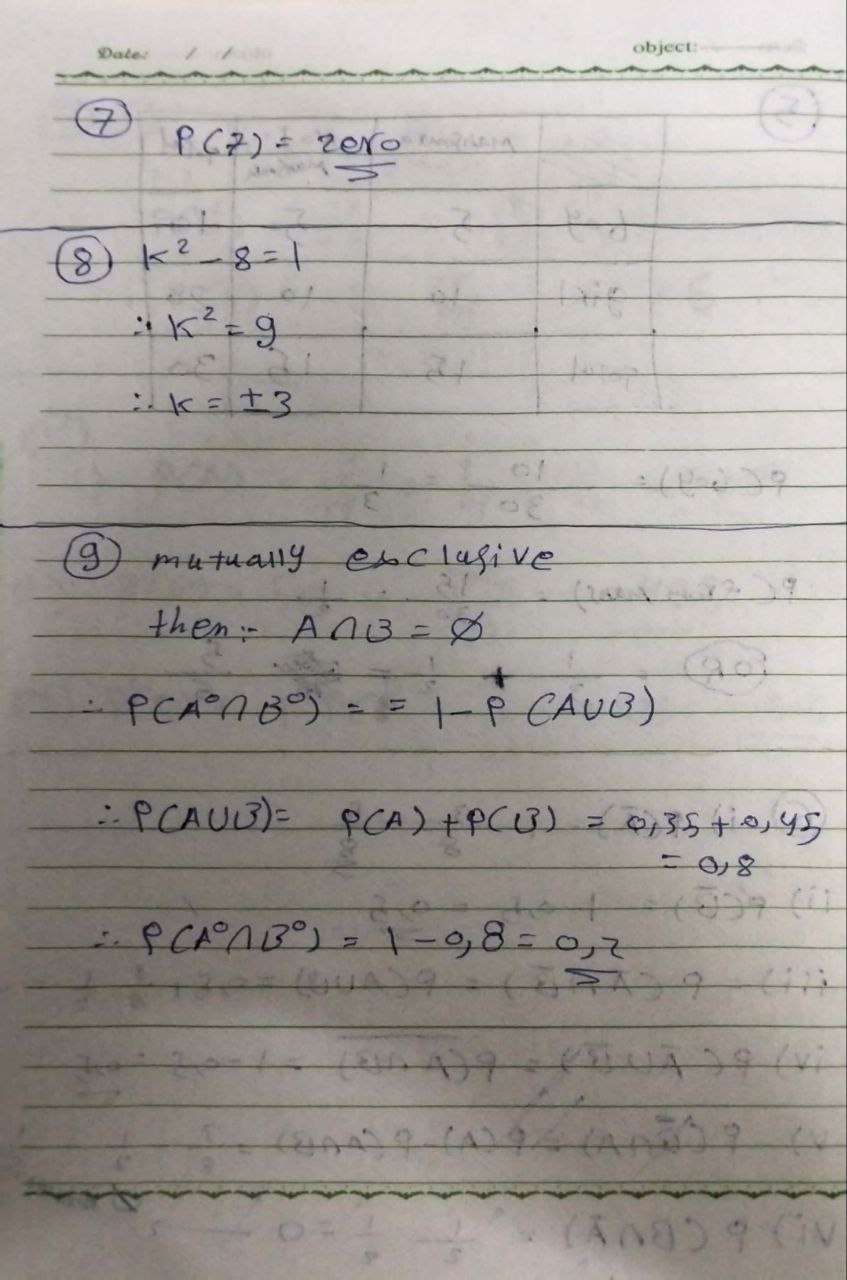 Date: / /
object:
7
P(7) = zero
8 K² - 8 = 1
∴ K² = 9
∴ K = ±3
9 mutually exclusive
then:- A∩B = ∅
∴ P(A°∩B°) = = 1 - P (A∪B)
∴ P(A∪B) = P(A) + P(B) = 0,35 + 0,45
= 0,8
∴ P(A°∩B°) = 1 - 0,8 = 0,2